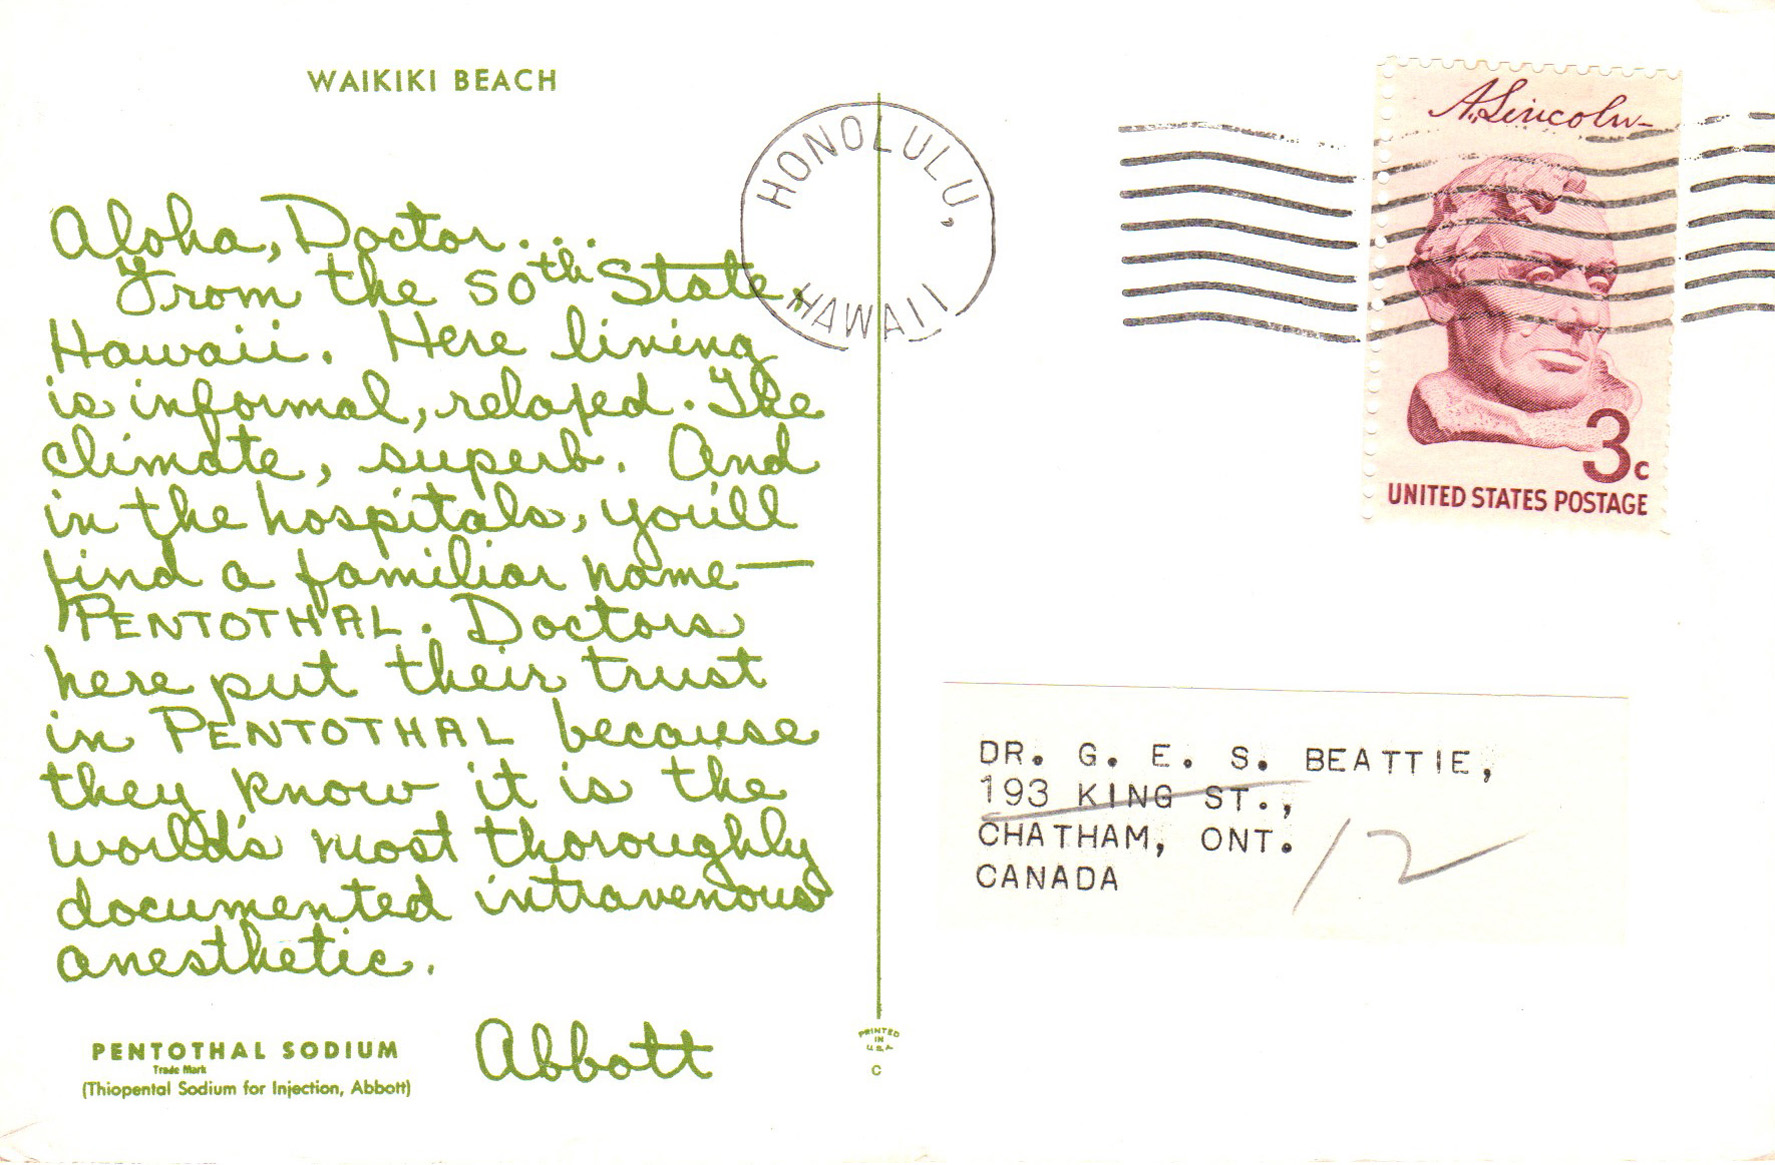 WAIKIKI BEACH
Aloha, Doctor...
From the 50th State,
Hawaii. Here living
is informal, relaxed. The
climate, superb. And
in the hospitals, you'll
find a familiar name—
PENTOTHAL. Doctors
here put their trust
in PENTOTHAL because
they know it is the
world's most thoroughly
documented intravenous
anesthetic.
Abbott
PENTOTHAL SODIUM
Trade Mark
(Thiopental Sodium for Injection, Abbott)
PRINTED
IN
U.S.A.
C
HONOLULU,
HAWAII
A. Lincoln
3c
UNITED STATES POSTAGE
DR. G. E. S. BEATTIE,
193 KING ST.,
CHATHAM, ONT.
CANADA
12